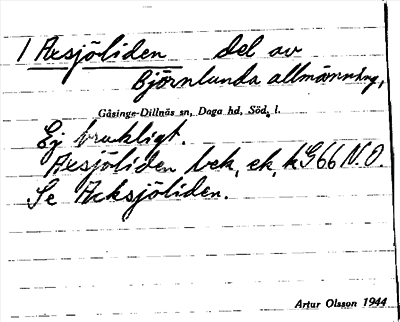 1 Axsjöliden del av
Björnlunda allmänning,
Gåsinge-Dillnäs sn, Daga hd, Söd. l.
Ej brukligt.
Axsjöliden bek, ek, k G66 N.O.
Se Acksjöliden.
Artur Olsson 1944